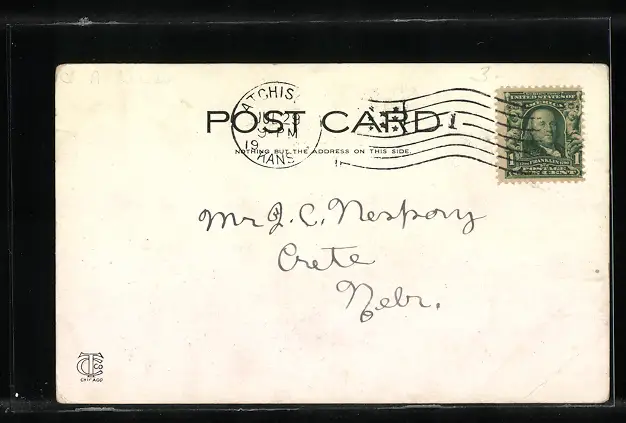 ATCHIS
29
9- PM
19
KANS
1
POST CARD
NOTHING BUT THE ADDRESS ON THIS SIDE.
UNITED STATES OF
AMERICA
FRANKLIN
1 1
POSTAGE
ONE CENT
3
Mr J. C. Nespory
Crete
Nebr.
CHICAGO